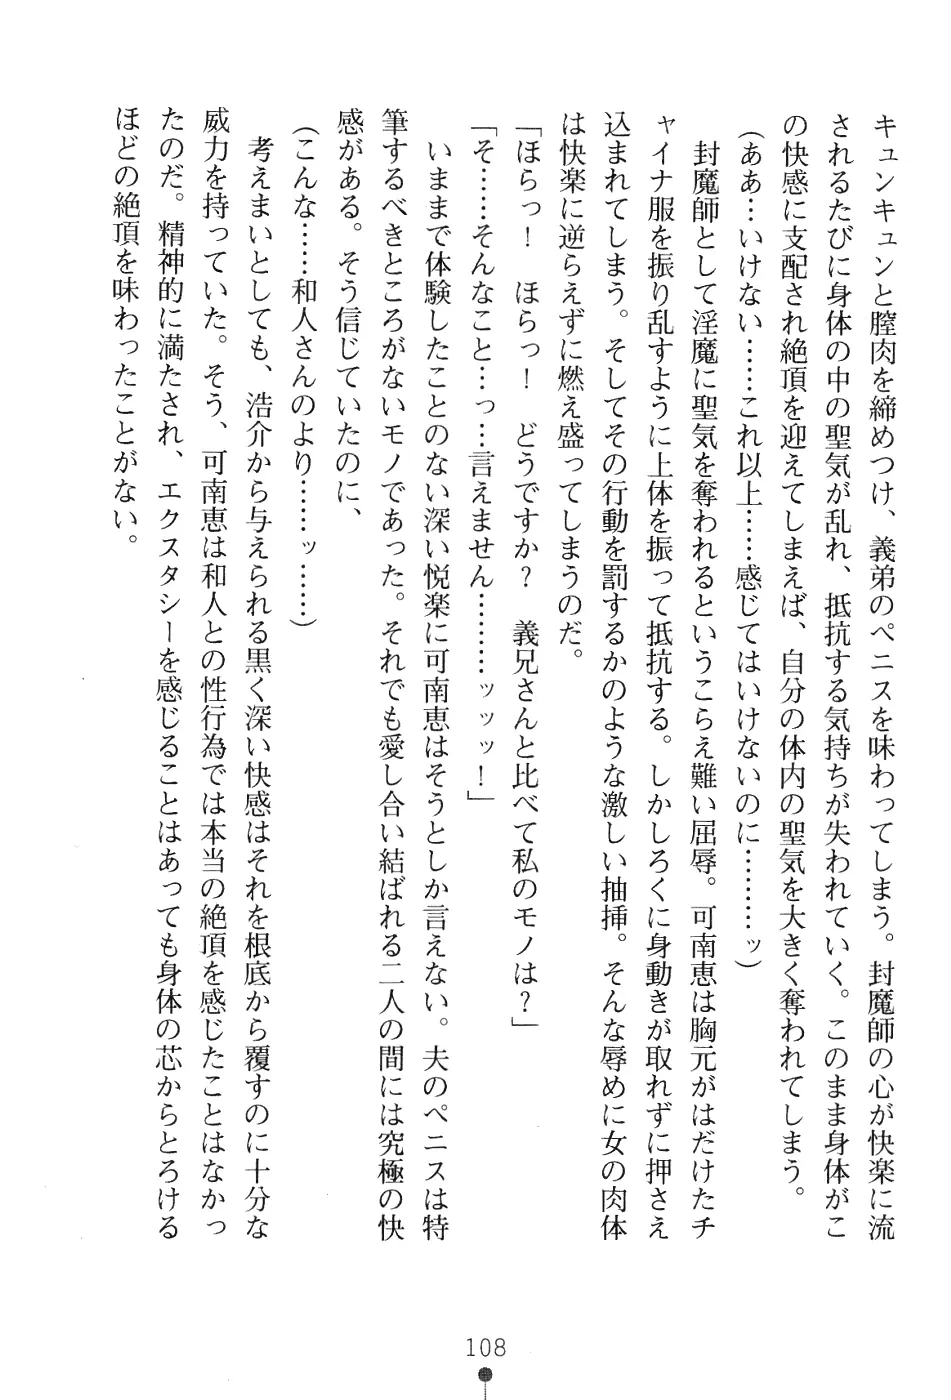 キュンキュンと膣肉を締めつけ、義弟のペニスを味わってしまう。封魔師の心が快楽に流
されるたびに身体の中の聖気が乱れ、抵抗する気持ちが失われていく。このまま身体がこ
の快感に支配され絶頂を迎えてしまえば、自分の体内の聖気を大きく奪われてしまう。
(ああ…いけない……これ以上……感じてはいけないのに………ッ)
　封魔師として淫魔に聖気を奪われるというこらえ難い屈辱。可南恵は胸元がはだけたチ
ャイナ服を振り乱すように上体を振って抵抗する。しかしろくに身動きが取れずに押さえ
込まれてしまう。そしてその行動を罰するかのような激しい抽挿。そんな辱めに女の肉体
は快楽に逆らえずに燃え盛ってしまうのだ。
「ほらっ！　ほらっ！　どうですか？　義兄さんと比べて私のモノは？」
「そ……そんなこと…っ…言えません………ッッッ！」
　いままで体験したことのない深い悦楽に可南恵はそうとしか言えない。夫のペニスは特
筆するべきところがないモノであった。それでも愛し合い結ばれる二人の間には究極の快
感がある。そう信じていたのに、
(こんな……和人さんのより……ッ……)
　考えまいとしても、浩介から与えられる黒く深い快感はそれを根底から覆すのに十分な
威力を持っていた。そう、可南恵は和人との性行為では本当の絶頂を感じたことはなかっ
たのだ。精神的に満たされ、エクスタシーを感じることはあっても身体の芯からとろける
ほどの絶頂を味わったことがない。
108